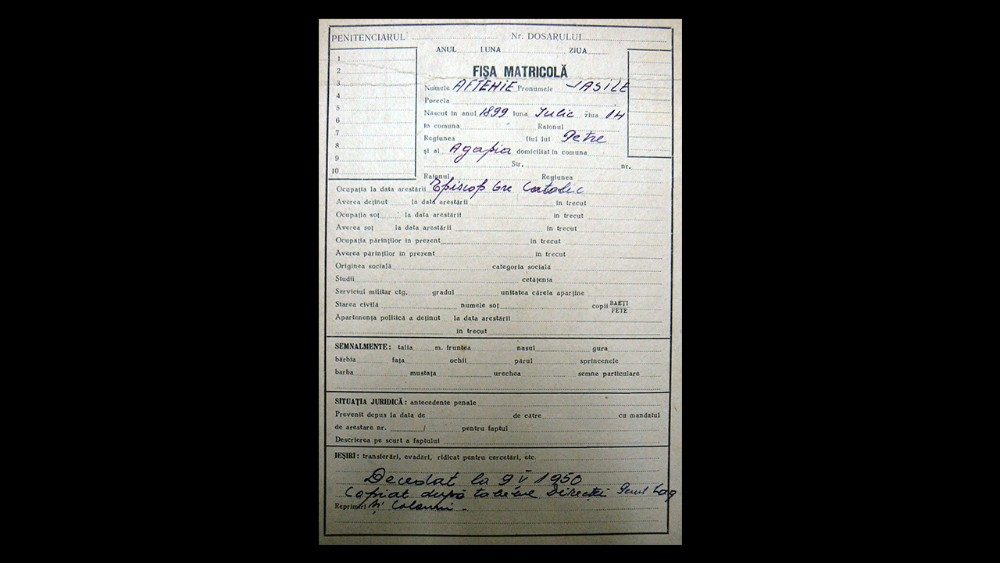 PENITENCIARUL Nr. DOSARULUI
ANUL LUNA ZIUA
1
2
3
4
5
6
7
8
9
10
FIȘA MATRICOLĂ
Numele AFTENIE Pronumele VASILE
Porecla
Născut în anul 1899 luna Iulie ziua 14
în comuna Raionul
Regiunea fiul lui Petre
și al Agafia domiciliat în comuna
Str. nr.
Raionul Regiunea
Ocupația la data arestării Episcop Gr Catolic
Averea deținut la data arestării în trecut
Ocupația soț la data arestării în trecut
Averea soț la data arestării în trecut
Ocupația părinților în prezent în trecut
Averea părinților în prezent în trecut
Originea socială categoria socială
Studii cetățenia
Serviciul militar ctg. gradul unitatea căreia aparține
Starea civilă numele soț copii BĂEȚI FETE
Apartenența politică a deținut la data arestării
în trecut
SEMNALMENTE: talia m. fruntea nasul gura
bărbia fața ochii părul sprîncenele
barba mustața urechea semne particulare
SITUAȚIA JURIDICĂ: antecedente penale
Prevenit depus la data de de către cu mandatul
de arestare nr. / pentru faptul
Descrierea pe scurt a faptului
IEȘIRI: transferări, evadări, ridicat pentru cercetări, etc.
Decedat la 9 V 1950
Copiat după tabelele Direcției Penit Lag
Reprimiri și Coloniii